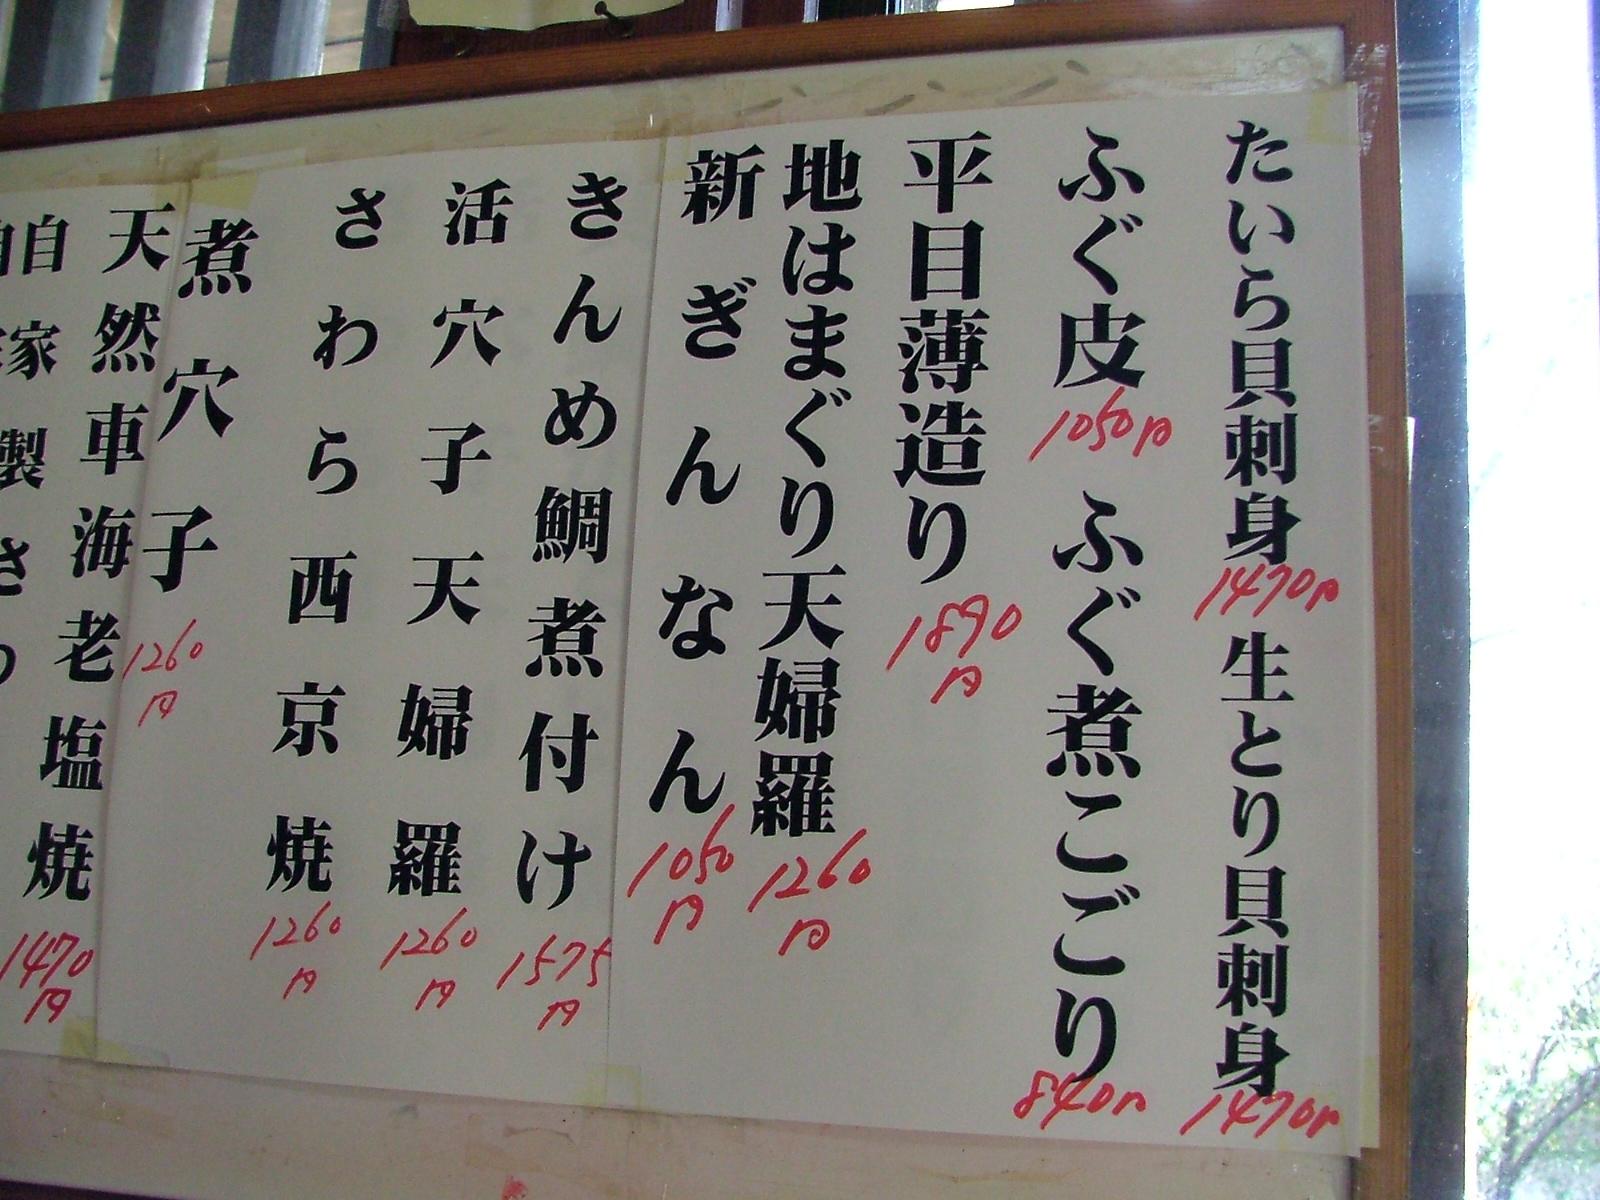 たいら貝刺身 1470円 生とり貝刺身 1470円
ふぐ皮 1050円 ふぐ煮こごり 840円
平目薄造り 1890円
地はまぐり天婦羅 1260円
新ぎんなん 1050円
きんめ鯛煮付け 1575円
活穴子天婦羅 1260円
さわら西京焼 1260円
煮穴子 1260円
天然車海老塩焼 1470円
自家製さつ